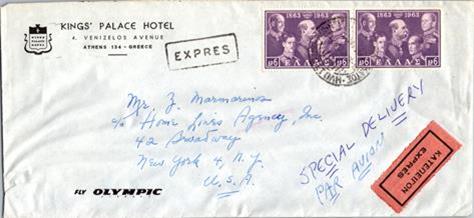 KINGS' PALACE HOTEL
4, VENIZELOS AVENUE
ATHENS 134 - GREECE
KINGS
PALACE
HOTEL
EXPRES
1863 1963
ΕΛΛΑΣ
1863 1963
ΕΛΛΑΣ
Mr. Z. Marmarinos
c/o Home Lines Agency, Inc.
42 Broadway
New York 4, N.Y.
U.S.A.
SPECIAL DELIVERY
PAR AVION
ΚΑΤΕΠΕΙΓΟΝ
EXPRÈS
FLY OLYMPIC